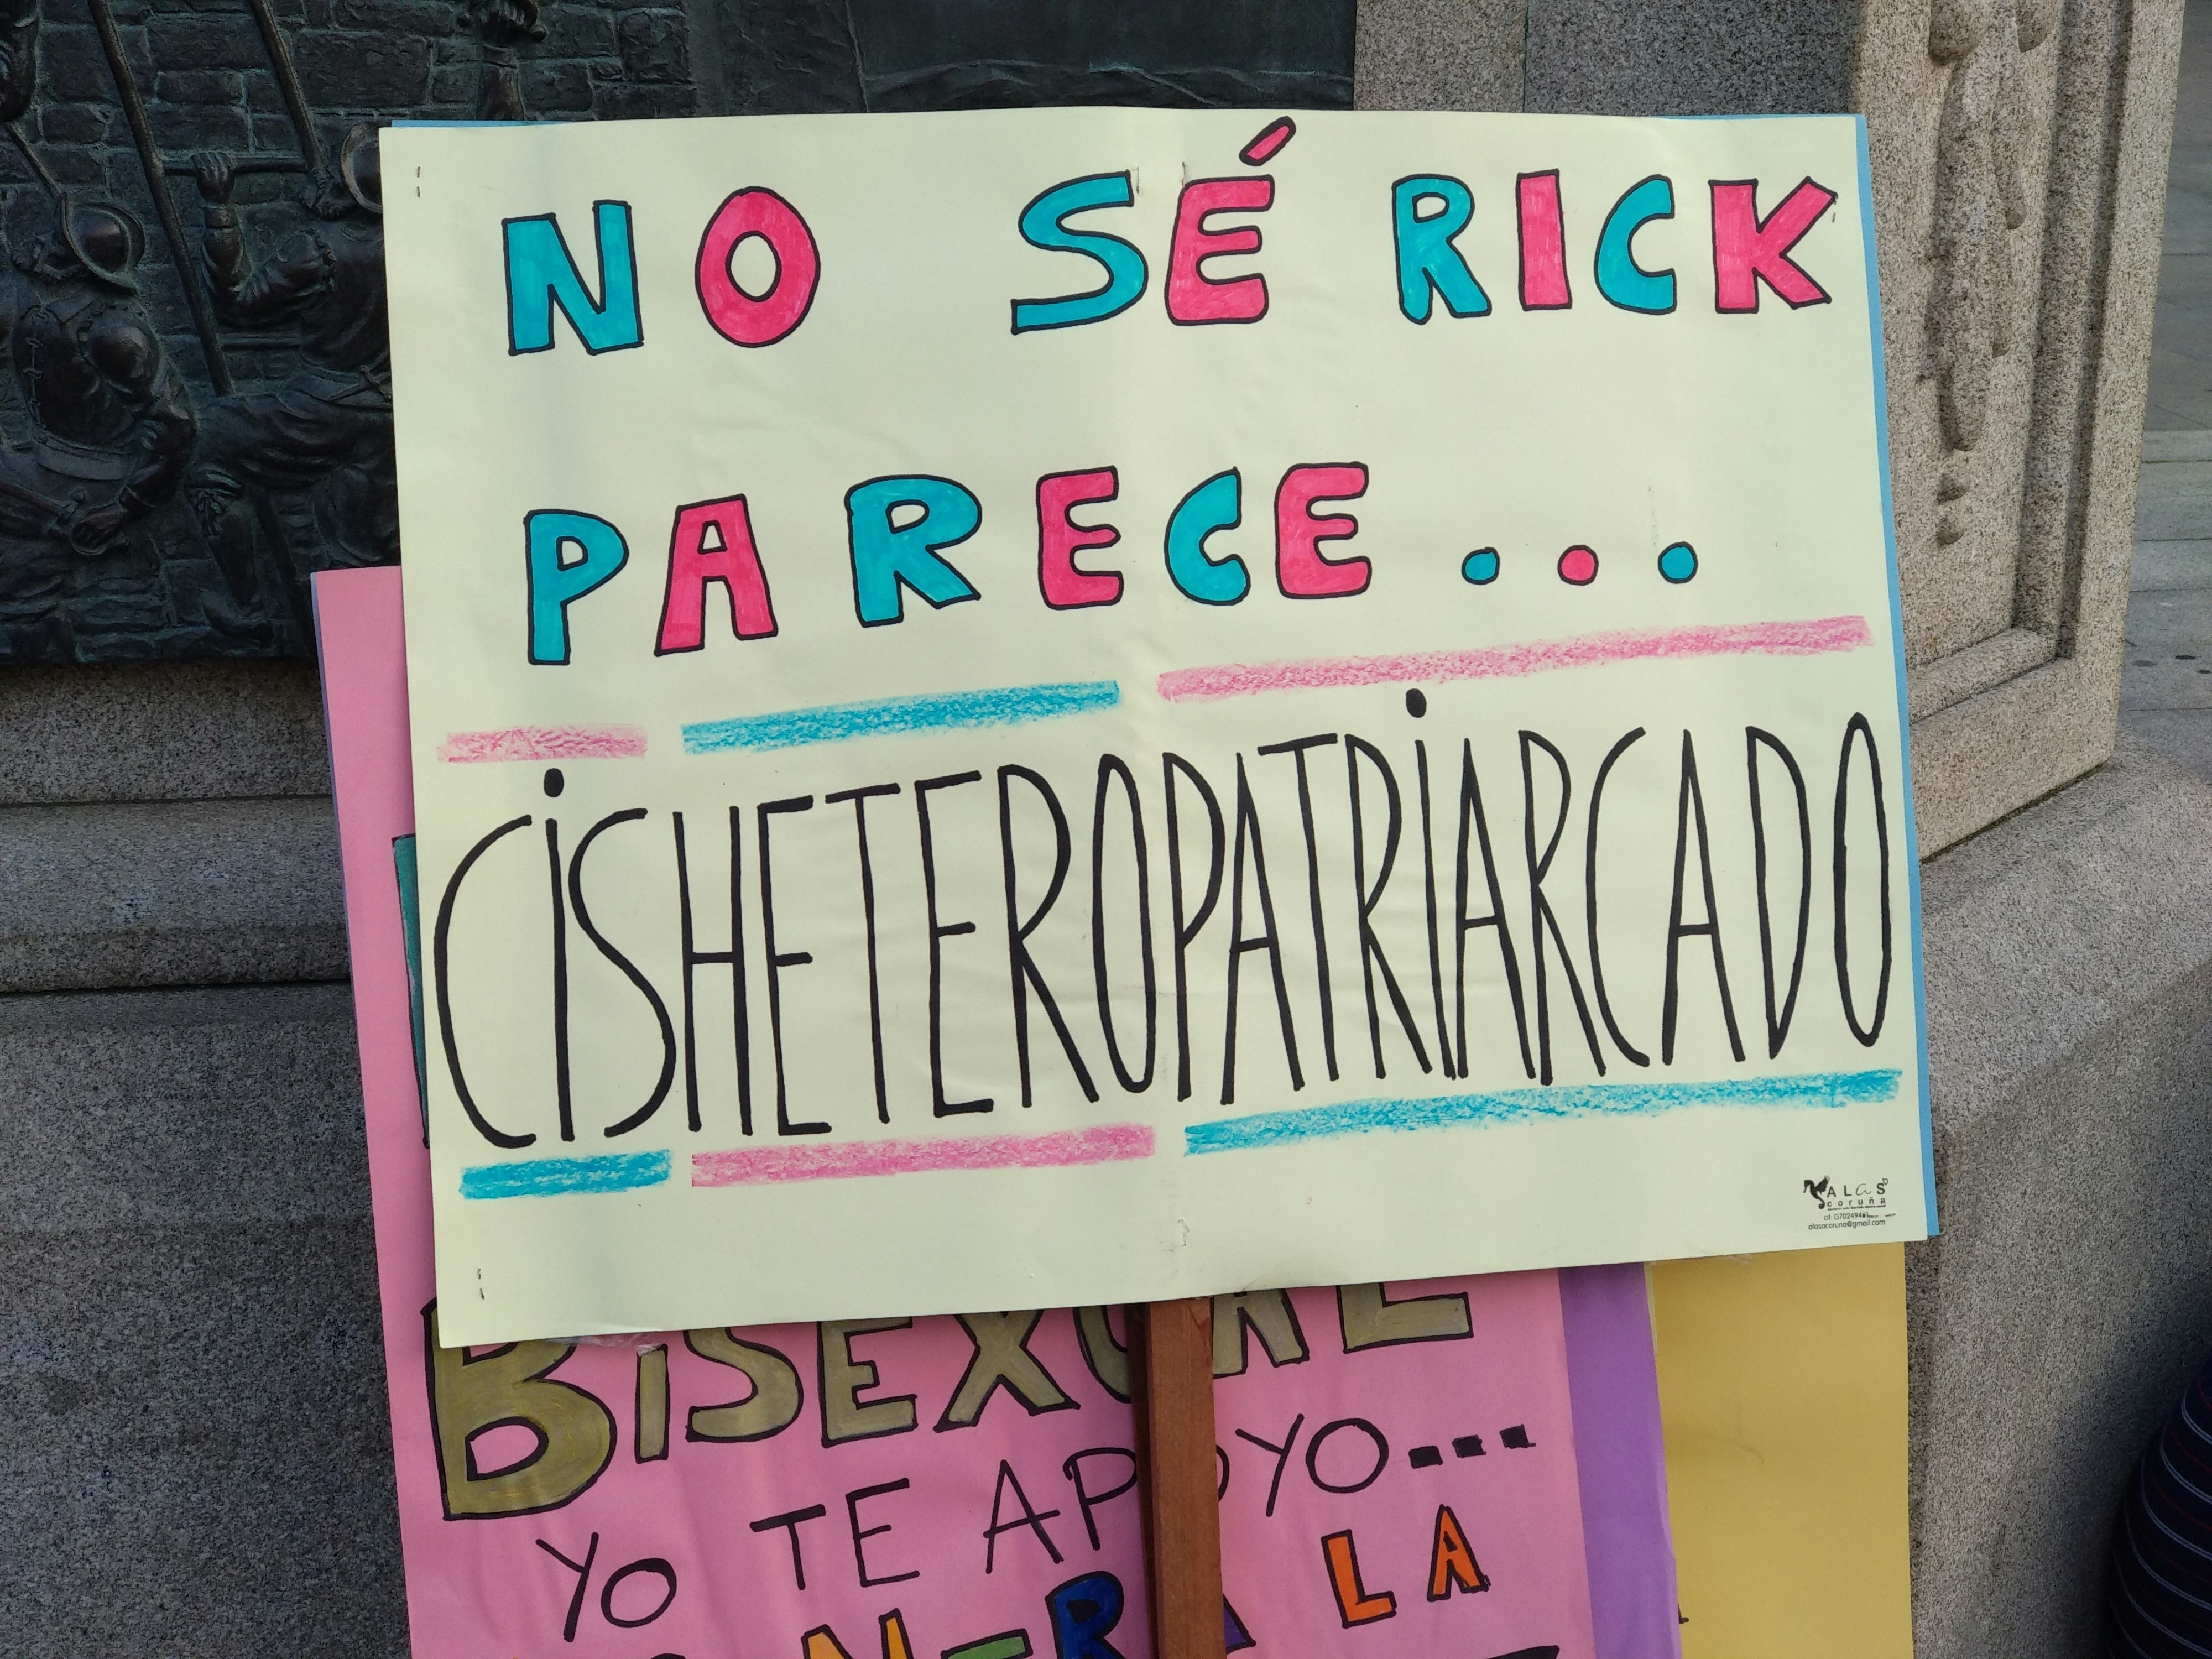 NO SÉ RICK
PARECE...
CISHETEROPATRIARCADO
ALaS
coruña
alasacoruna@gmail.com
BISEXUAL
YO TE APOYO...
LA